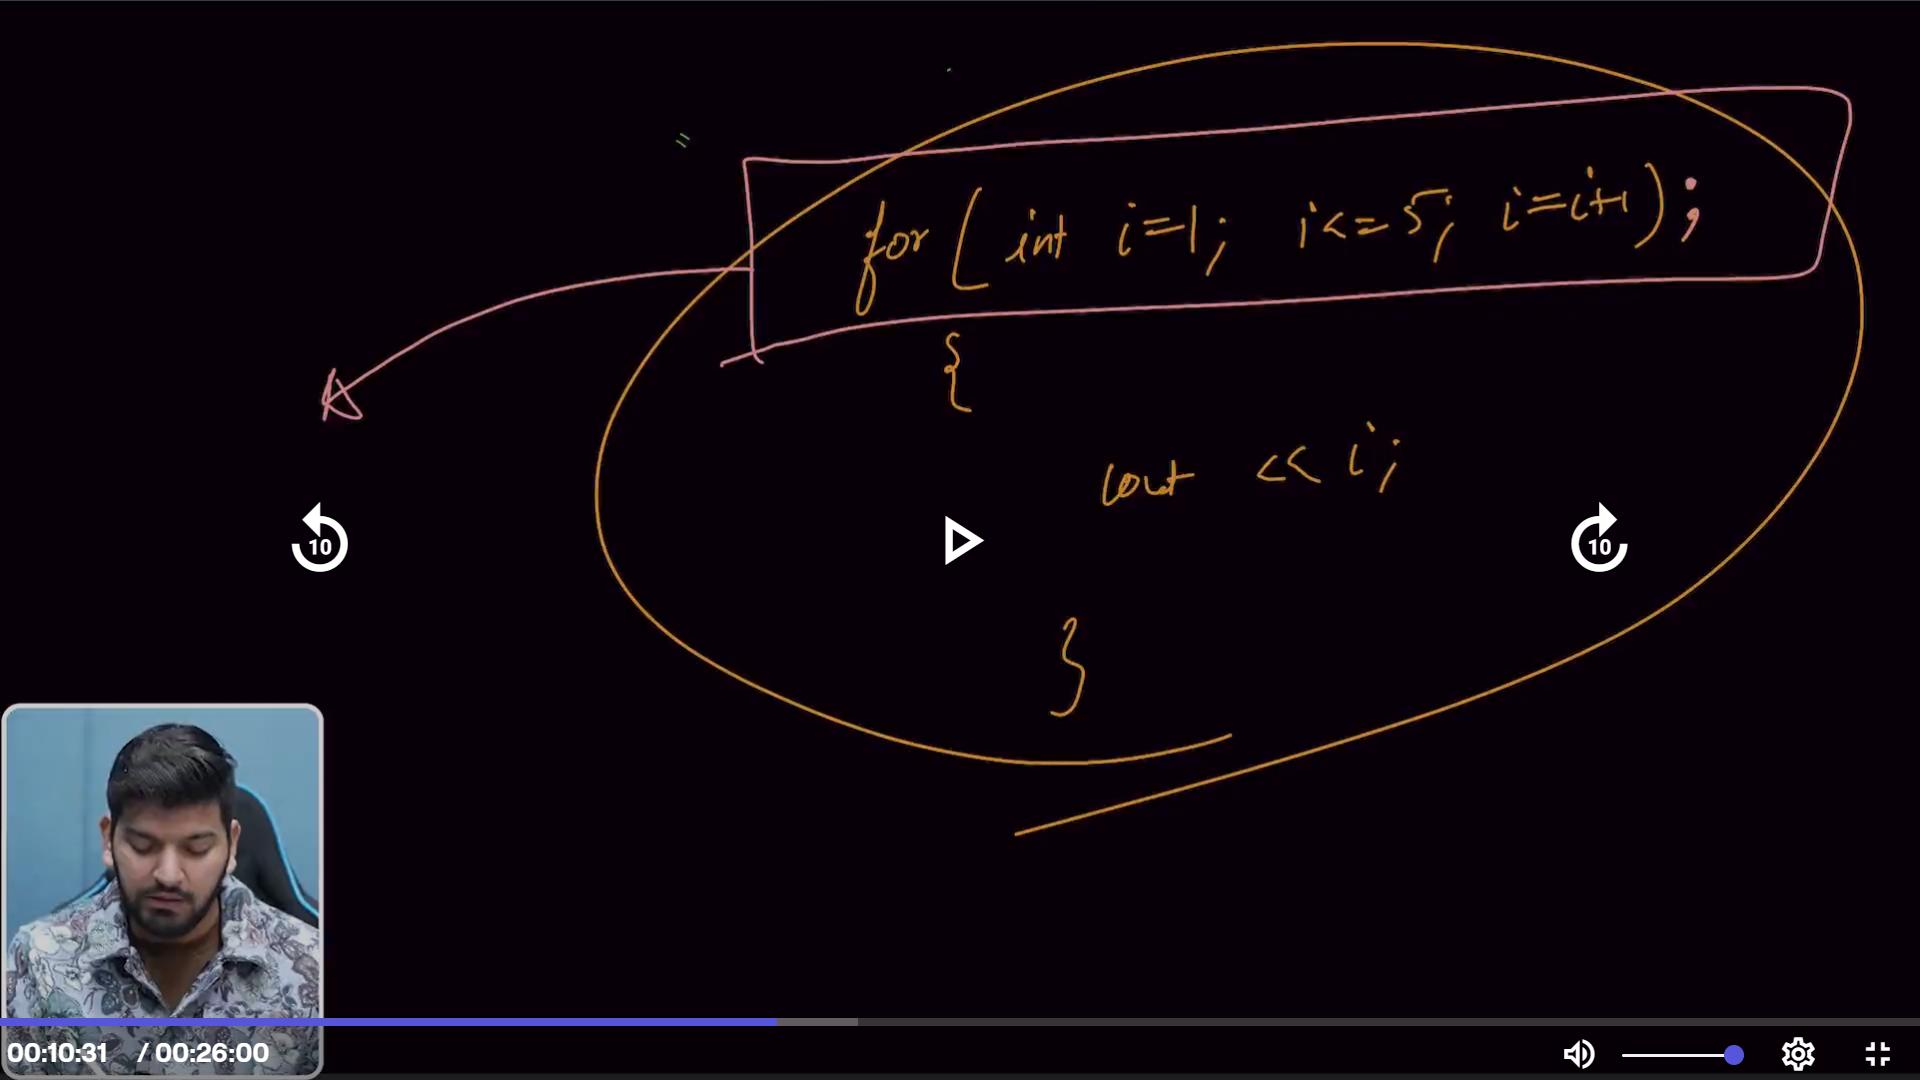 for ( int i=1; i<=5; i=i+1);
{
cout << i;
}
10
10
00:10:31 / 00:26:00